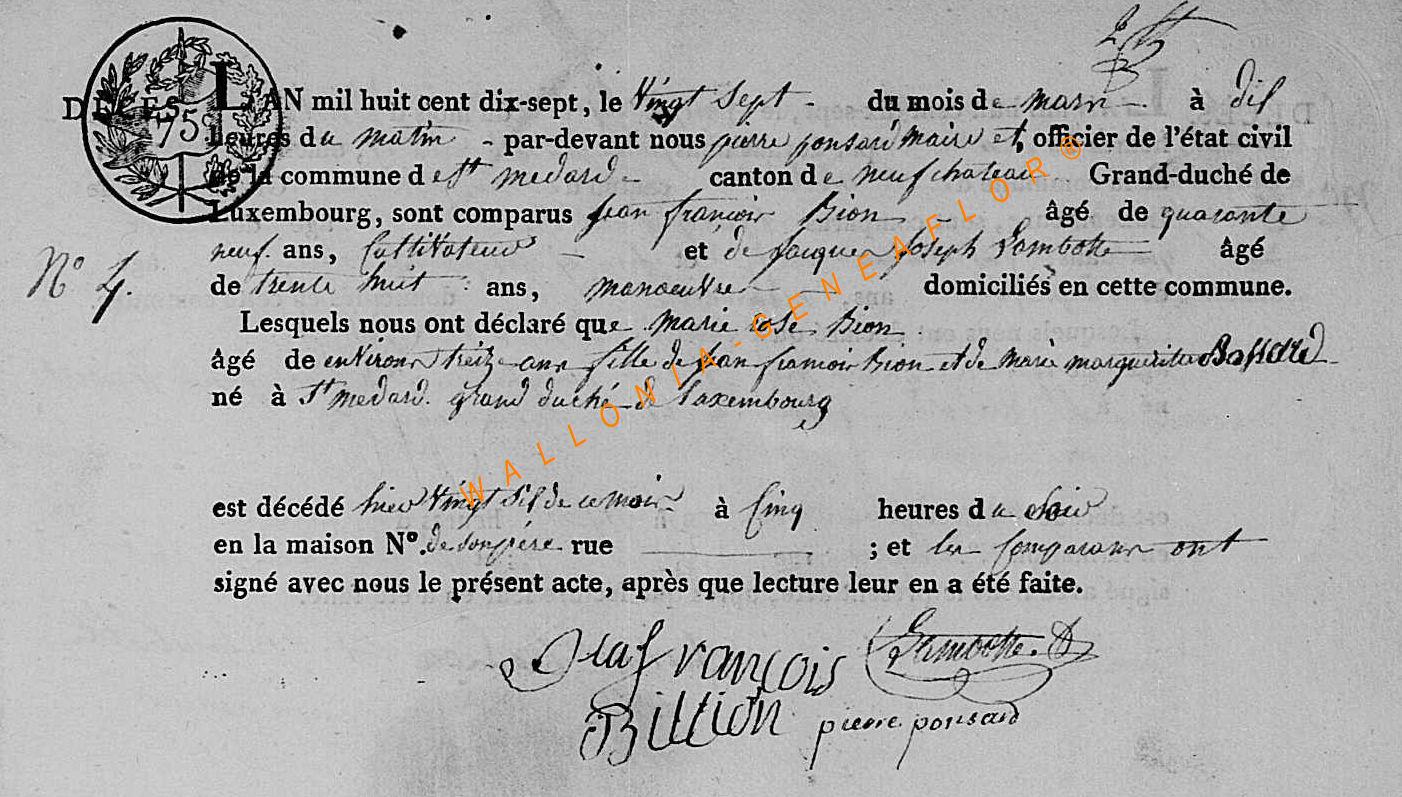 DÉCÈS
75
L'AN mil huit cent dix-sept, le Vingt Sept du mois de mars à dis
heures du matin par-devant nous pierre ponsard maire et, officier de l'état civil
de la commune de St medard canton de neufchateau Grand-duché de
Luxembourg, sont comparus jean francois Bion âgé de quarante
neuf ans, Cultivateur et de jacques joseph Lambotte âgé
No 4. de trente huit ans, manoeuvre domiciliés en cette commune.
Lesquels nous ont déclaré que marie rose Bion
âgé de environs treize ans fille de jean francois Bion et de marie marguerite
né à St medard grand duché de Luxembourg
est décédé hier Vingt Sis de ce mois à Cinq heures du Soir
en la maison N°. de son père rue ; et les Comparans ont
signé avec nous le présent acte, après que lecture leur en a été faite.
françois Lambotte
Billion pierre ponsard
WALLONIA-GENEAFLOR®